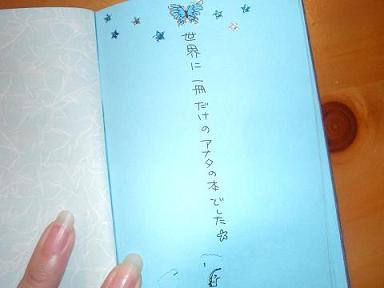 世界に一冊だけのアナタの本でした